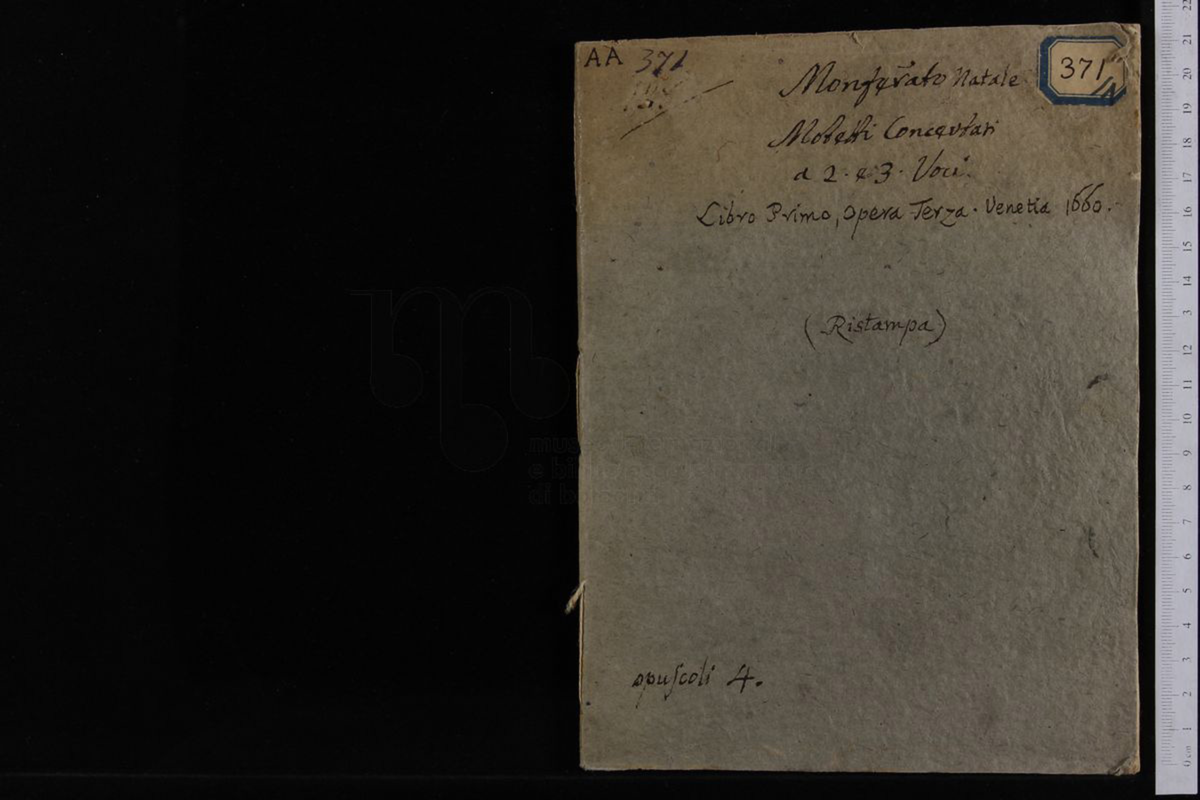 AA 371
371
Monferato Natale
Motetti Concertati
a 2. e 3. Voci.
Libro Primo, Opera Terza. Venetia 1660.
(Ristampa)
opuſcoli 4.